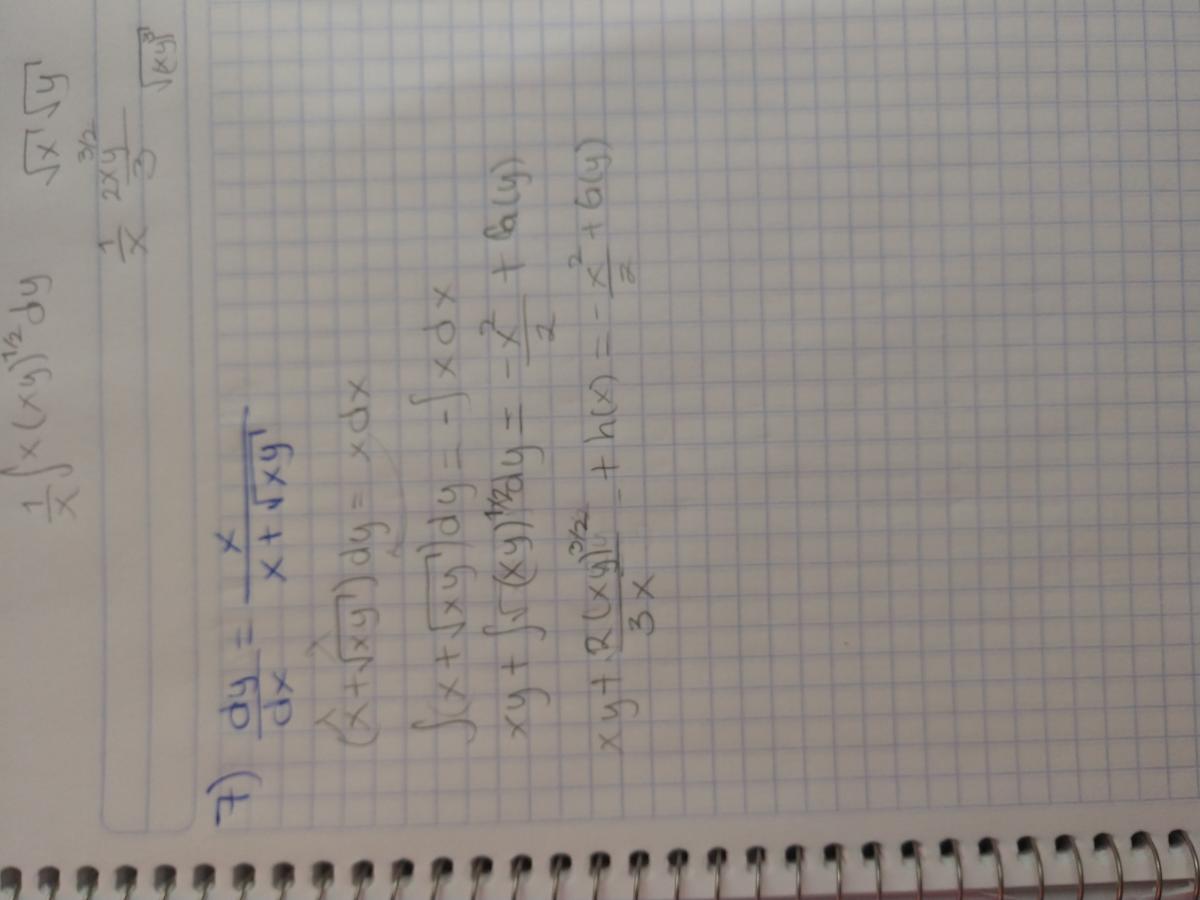 1/x ∫x(xy)^1/2 dy √x √y
1/x 2xy^3/2 / 3
7) dy/dx = x/(x+√xy)
(x+√xy)dy = x dx
∫(x+√xy)dy = -∫x dx
xy + ∫√(xy)^1/2 dy = -x²/2 + g(y)
xy + 2(xy)^3/2 / 3x + h(x) = -x²/2 + g(y)